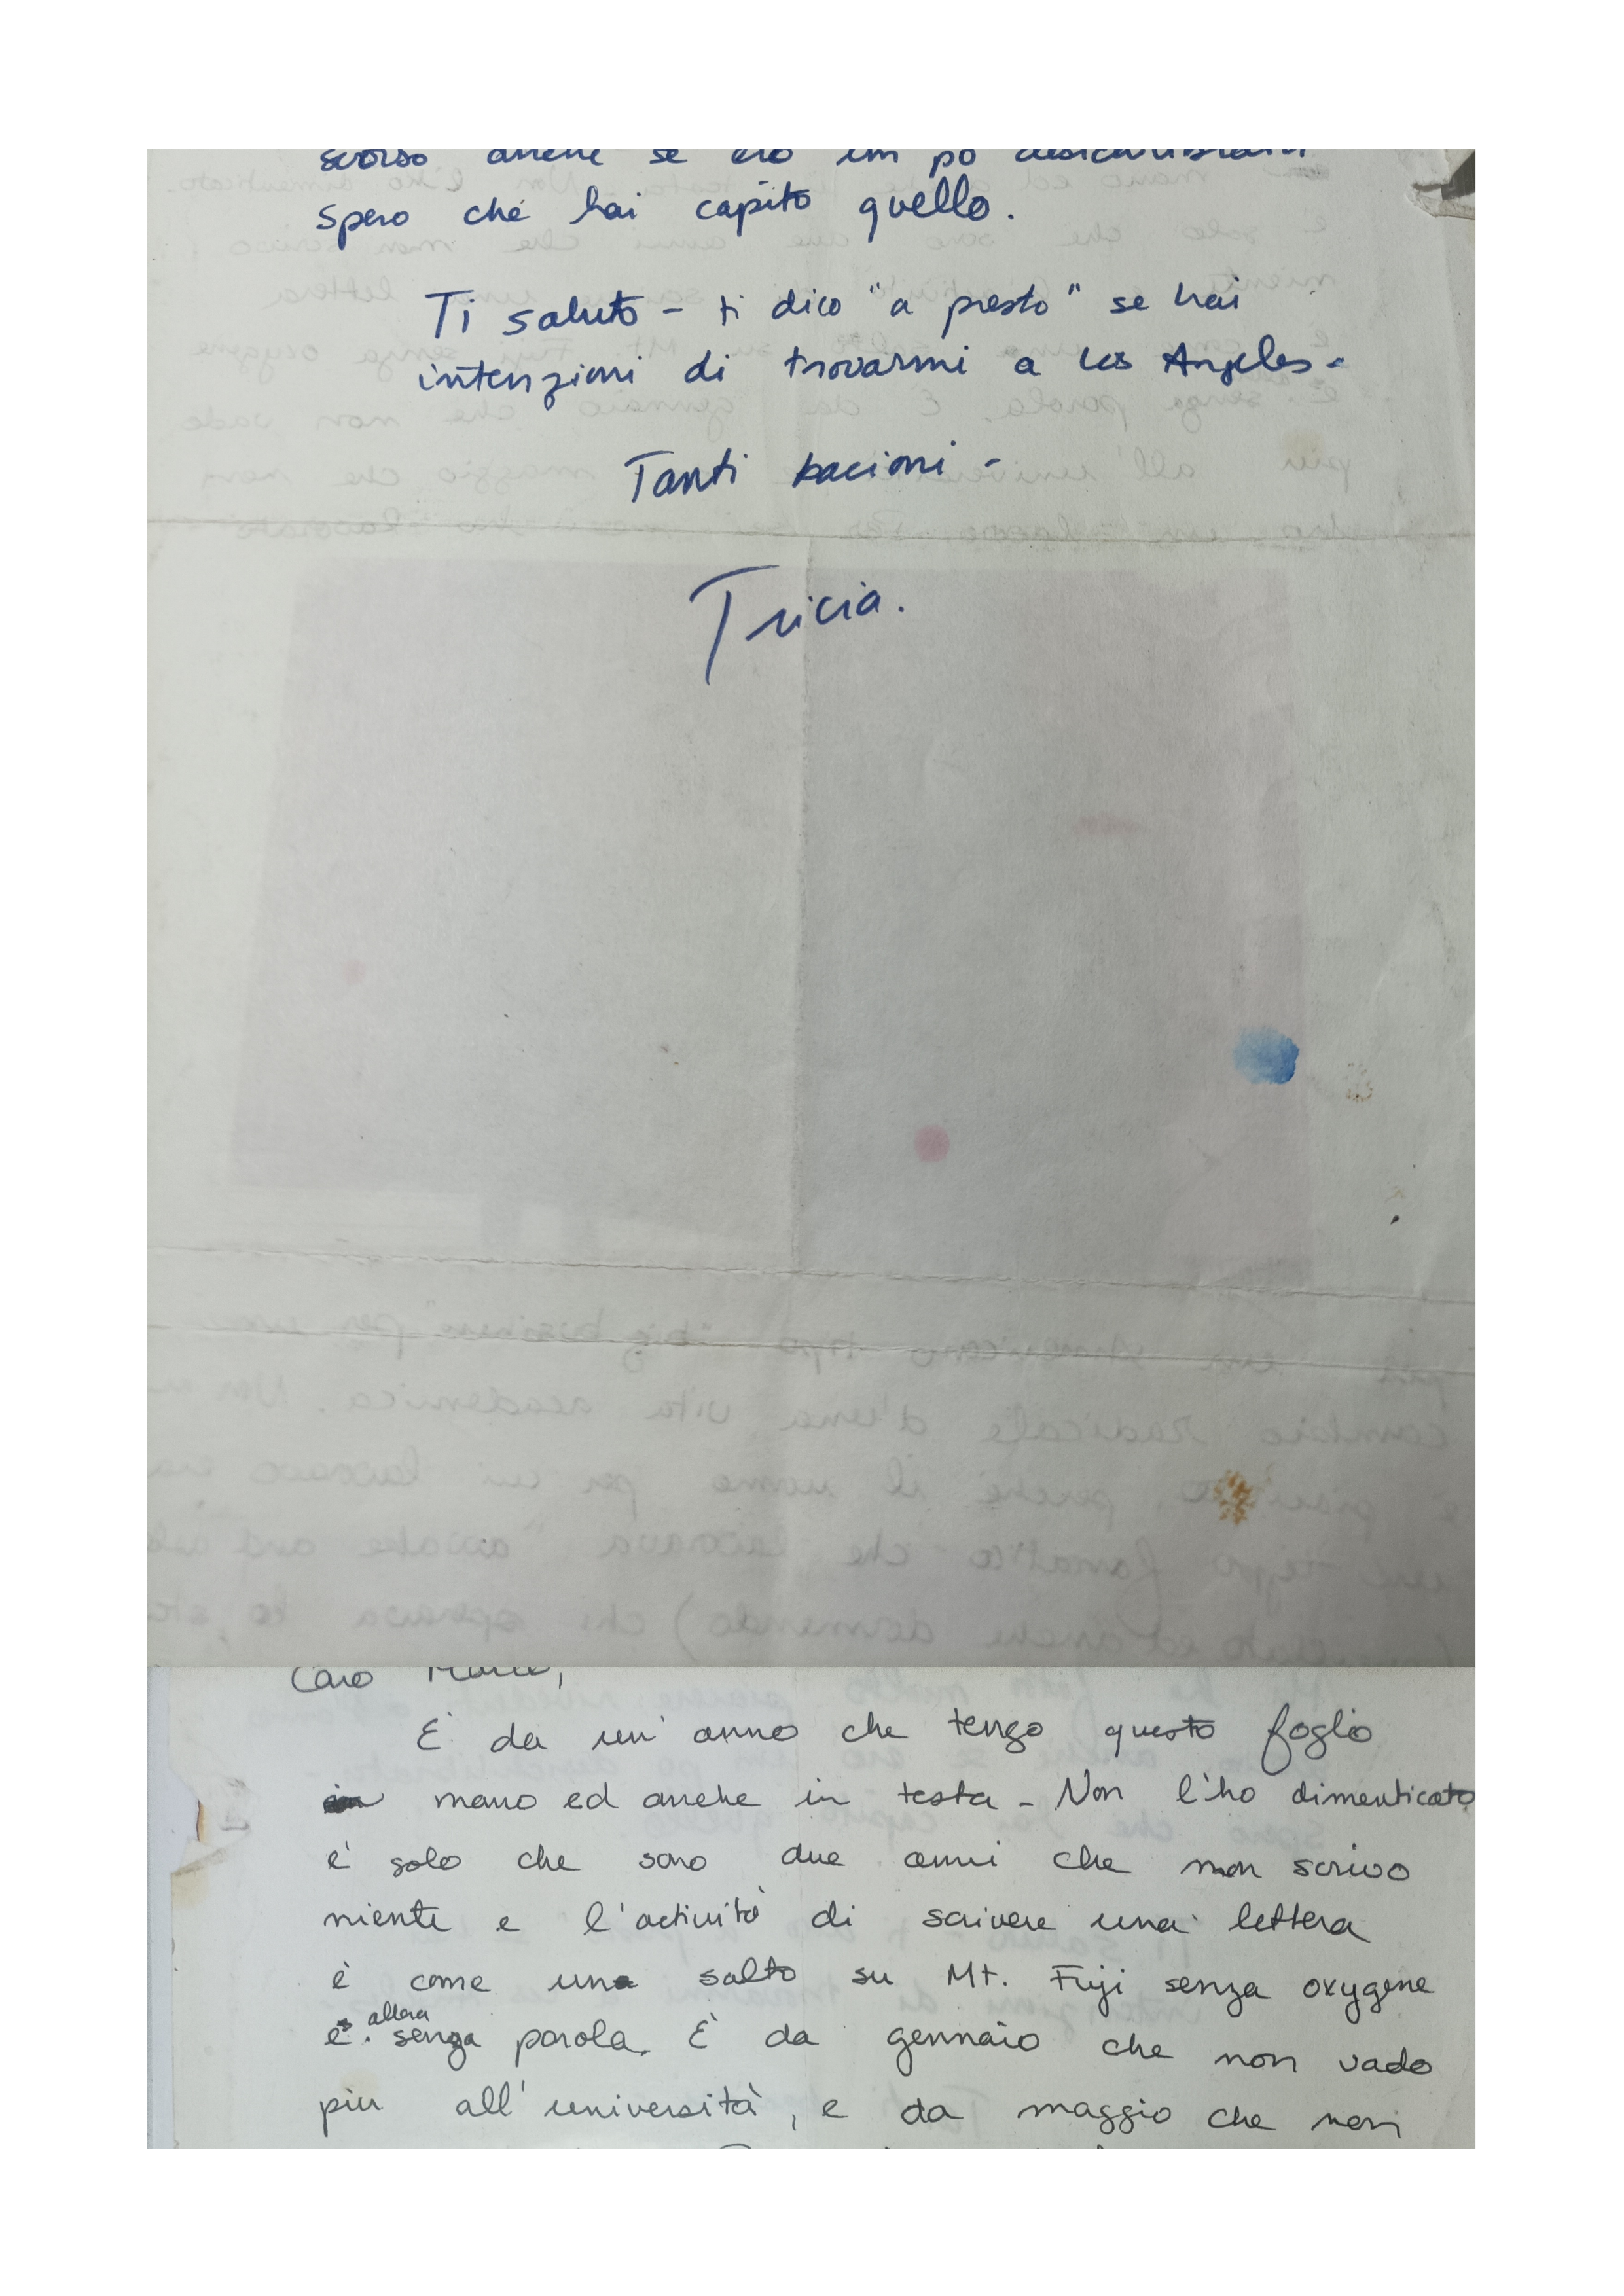 scorso anche se ero un po
spero che hai capito quello.
Ti saluto - ti dico "a presto" se hai
intenzioni di trovarmi a Los Angeles.
Tanti bacioni -
Tricia.
Caro
E' da un' anno che tengo questo foglio
in mano ed anche in testa - Non l'ho dimenticato
e' solo che sono due anni che non scrivo
niente e l'activita' di scrivere una lettera
è come un salto su Mt. Fuji senza oxygene
allora
e senza parola. E' da gennaio che non vado
piu all' università, e da maggio che non